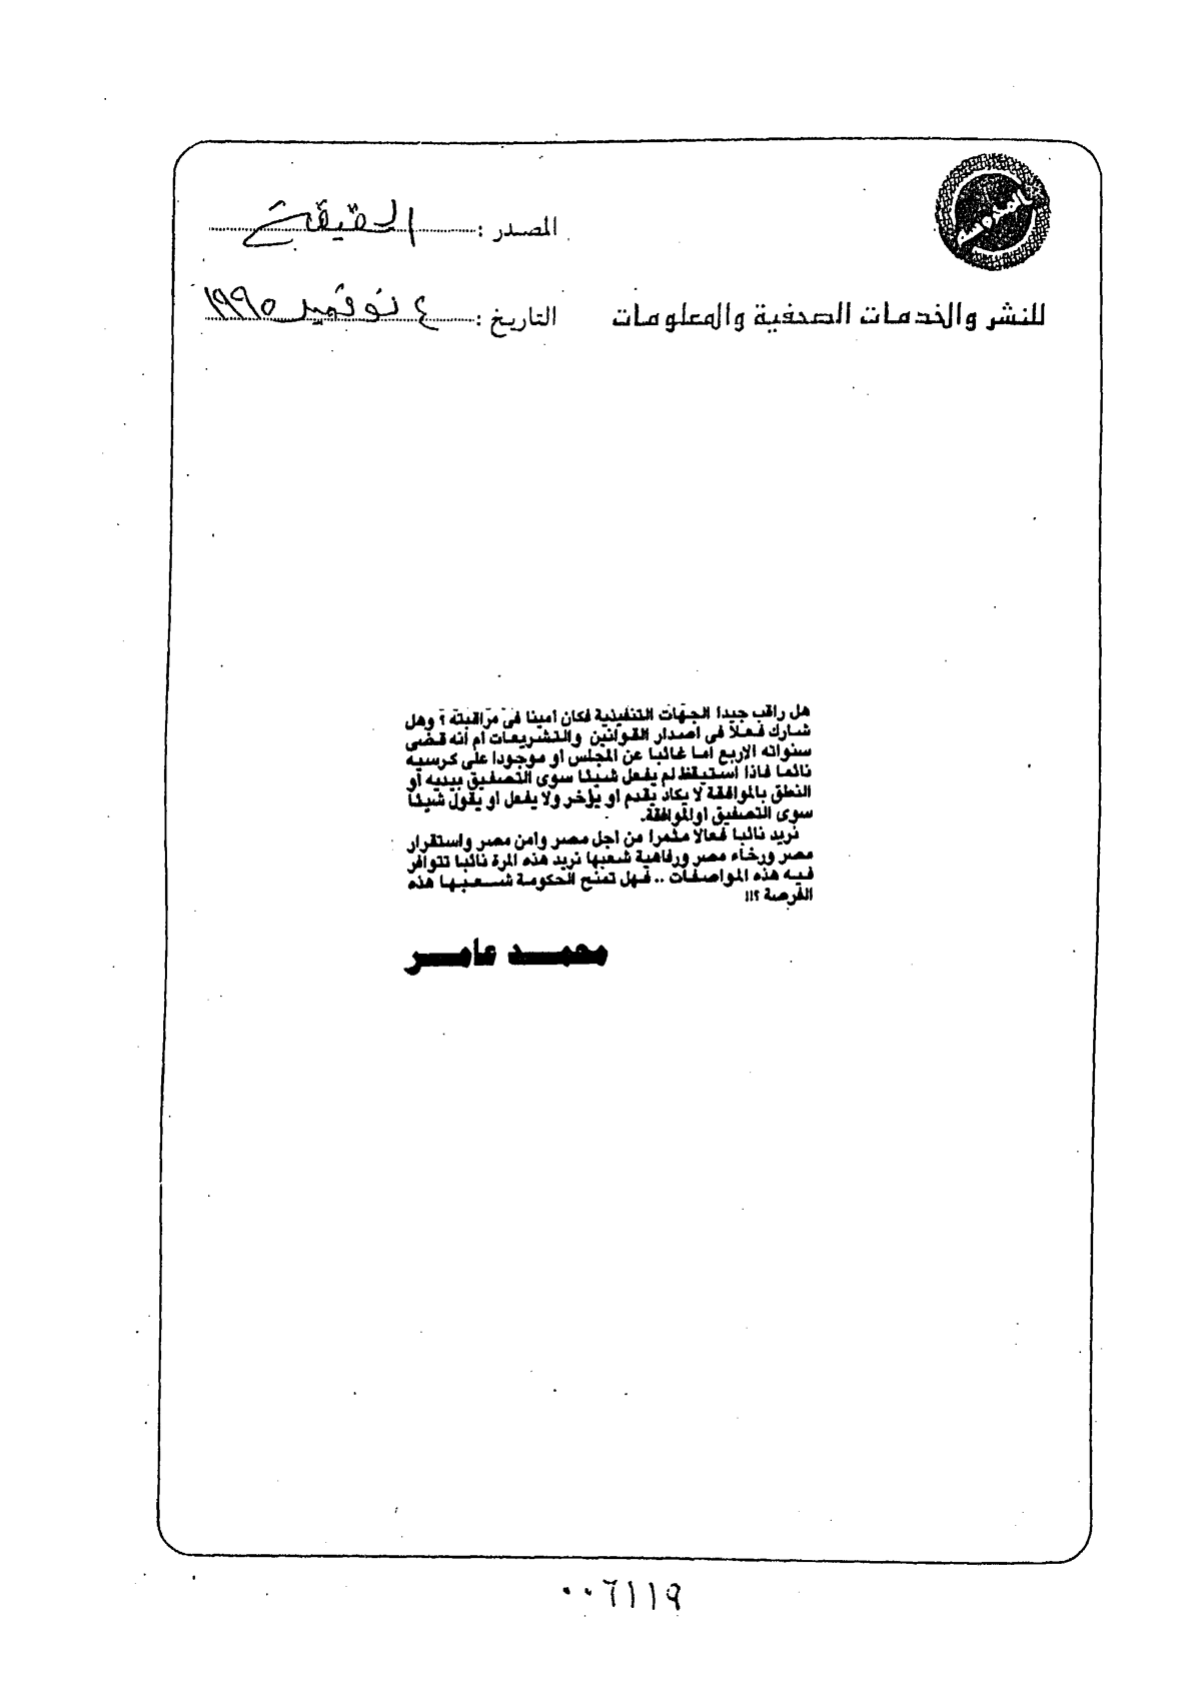 المصدر : الحقيقة
للنشر والخدمات الصحفية والمعلومات
التاريخ : ٤ نوفمبر ١٩٩٥
هل راقب جيدا الجهات التنفيذية فكان أمينا فى مراقبته ؟ وهل
شارك فعلا فى اصدار القوانين والتشريعات ام انه قضى
سنواته الاربع اما غائبا عن المجلس او موجودا على كرسيه
نائما فاذا استيقظ لم يفعل شيئا سوى التصفيق بيديه أو
النطق بالموافقة لا يكاد يقدم او يؤخر ولا يفعل او يقول شيئا
سوى التصفيق اوالموافقة.
نريد نائبا فعالا مثمرا من اجل مصر وامن مصر واستقرار
مصر ورخاء مصر ورفاهية شعبها نريد هذه المرة نائبا تتوافر
فيه هذه المواصفات .. فهل تمنح الحكومة شعبها هذه
الفرصة ؟!!
محمد عامر
٠٠٦١١٩